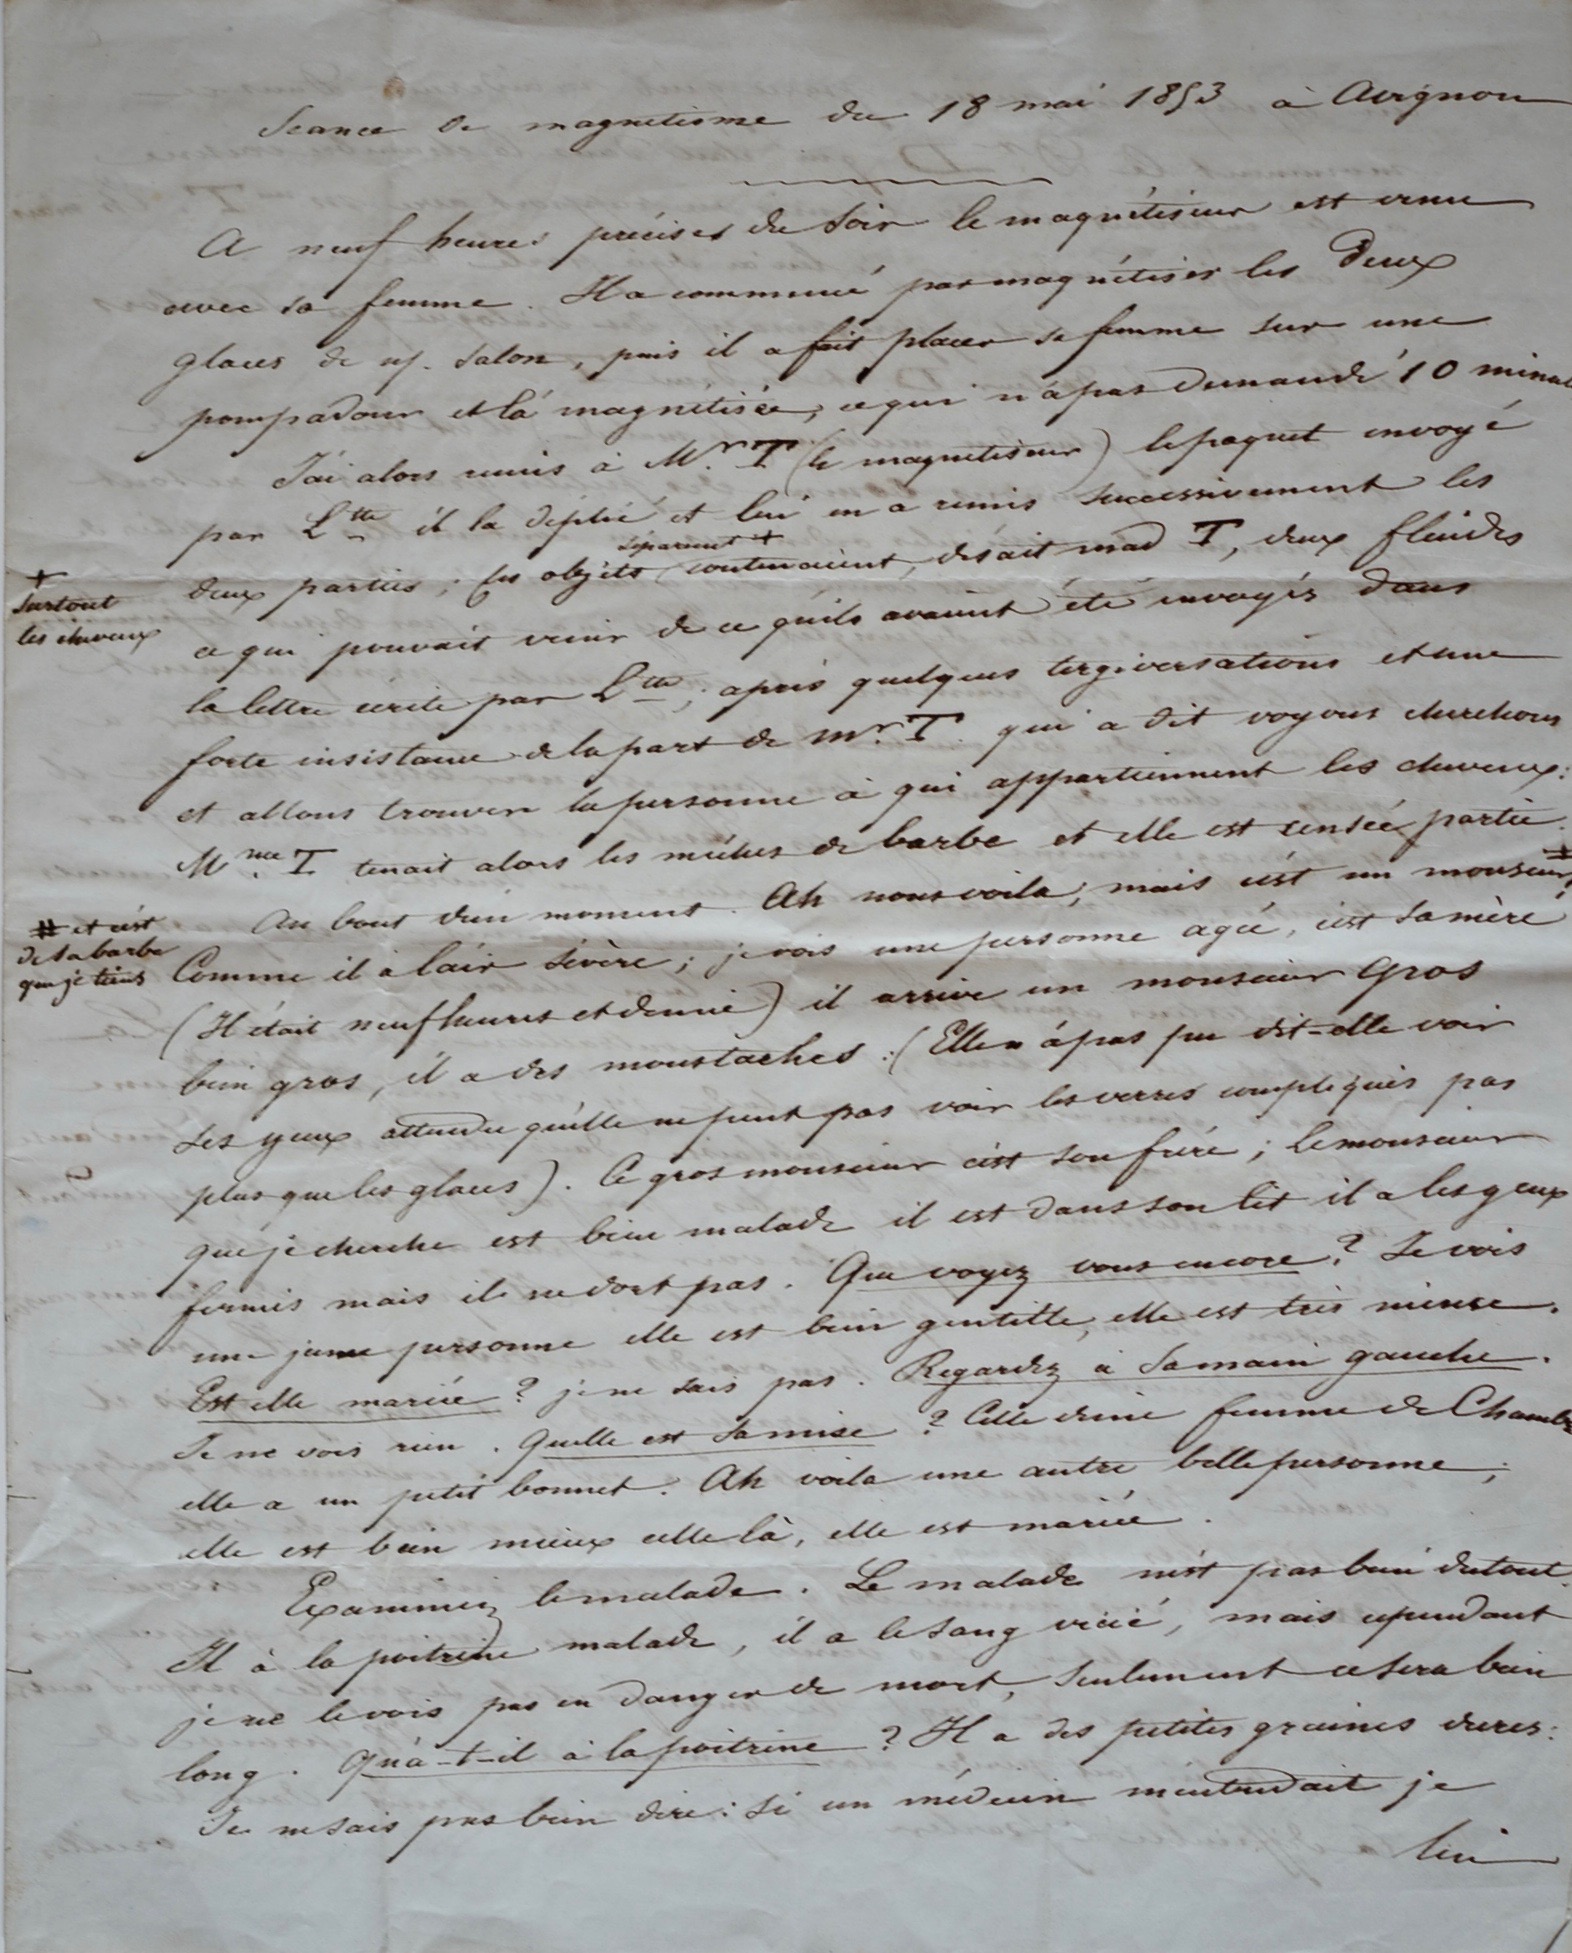 Seance de magnetisme du 18 mai 1853 à Avignon
A neuf heures précises du soir le magnétiseur est venu
avec sa femme. Il a commencé par magnétiser les deux
glaces de  salon, puis il a fait placer sa femme sur une
pompadour et l'á magnétisée, ce qui n'a pas demandé 10 minut
J'ai alors remis à Mr. T (le magnetiseur) le paquet envoyé
par Ltte il l'a déplié et lui en a remis successivement les
deux parties; les objets contenaient, disait mad T, deux fluides
séparement +
+
surtout
les cheveux
ce qui pouvait venir de ce qu'ils avaient été envoyés dans
la lettre écrite par Ltte; après quelques tergiversations et une
forte insistance de la part de Mr. T. qui a dit voyons cherchons
et allons trouver la personne à qui appartiennent les cheveux:
Mme. T tenait alors les mèches de barbe et elle est sensée partie.
Au bout d'un moment. Ah nous voila, mais c'est un monsieur, #
# et c'est
de sa barbe
que je tiens
Comme il à l'air sévère; je vois une personne agée, c'est sa mère
(Il était neuf heures et demie) il arrive un monsieur gros
bien gros, il a des moustaches. (Elle n'a pas pu dit-elle voir
ses yeux attendu qu'elle ne peut pas voir les verres compliqués pas
plus que les glaces). Ce gros monsieur c'est son frère; le monsieur
que je cherche est bien malade il est dans son lit il a les yeux
fermés mais il ne dort pas. Que voyez vous encore? Je vois
une jeune personne elle est bien gentille, elle est très mince.
Est elle mariée? je ne sais pas. Regardez à sa main gauche.
Je ne vois rien. Quelle est sa mise? Celle d'une femme de Chambre
elle a un petit bonnet. Ah voila une autre belle personne;
elle est bien mieux celle là, elle est mariée.
Examinez le malade. Le malade n'est pas bien du tout.
Il à la poitrine malade, il a le sang vicié, mais cependant
je ne le vois pas en danger de mort, seulement ce sera bien
long. Qu'a-t-il à la poitrine? Il a des petites graines dures:
Je ne sais pas bien dire: si un médecin m'entendait je
lui